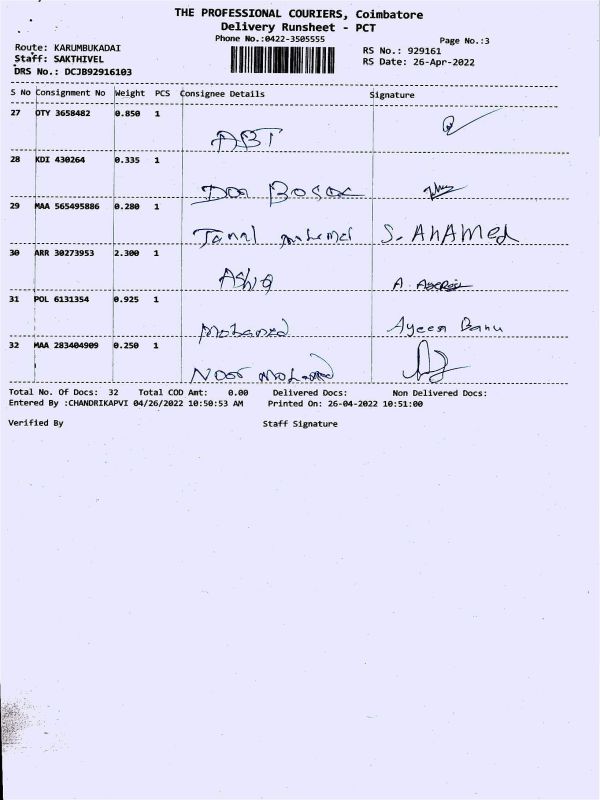 THE PROFESSIONAL COURIERS, Coimbatore
Delivery Runsheet - PCT
Phone No.:0422-3505555
Page No.:3
Route: KARUMBUKADAI
RS No.: 929161
Staff: SAKTHIVEL
RS Date: 26-Apr-2022
DRS No.: DCJB92916103
S No Consignment No Weight PCS Consignee Details Signature
27 OTY 3658482 0.850 1
ABT
28 KDI 430264 0.335 1
Don Bosco
29 MAA 565495886 0.280 1
Jamal S. AHAMed
30 ARR 30273953 2.300 1
Ashiq A.
31 POL 6131354 0.925 1
Mohamed Ayeesa Banu
32 MAA 283404909 0.250 1
Noor Mohamed
Total No. Of Docs: 32 Total COD Amt: 0.00 Delivered Docs: Non Delivered Docs:
Entered By :CHANDRIKAPVI 04/26/2022 10:50:53 AM Printed On: 26-04-2022 10:51:00
Verified By Staff Signature